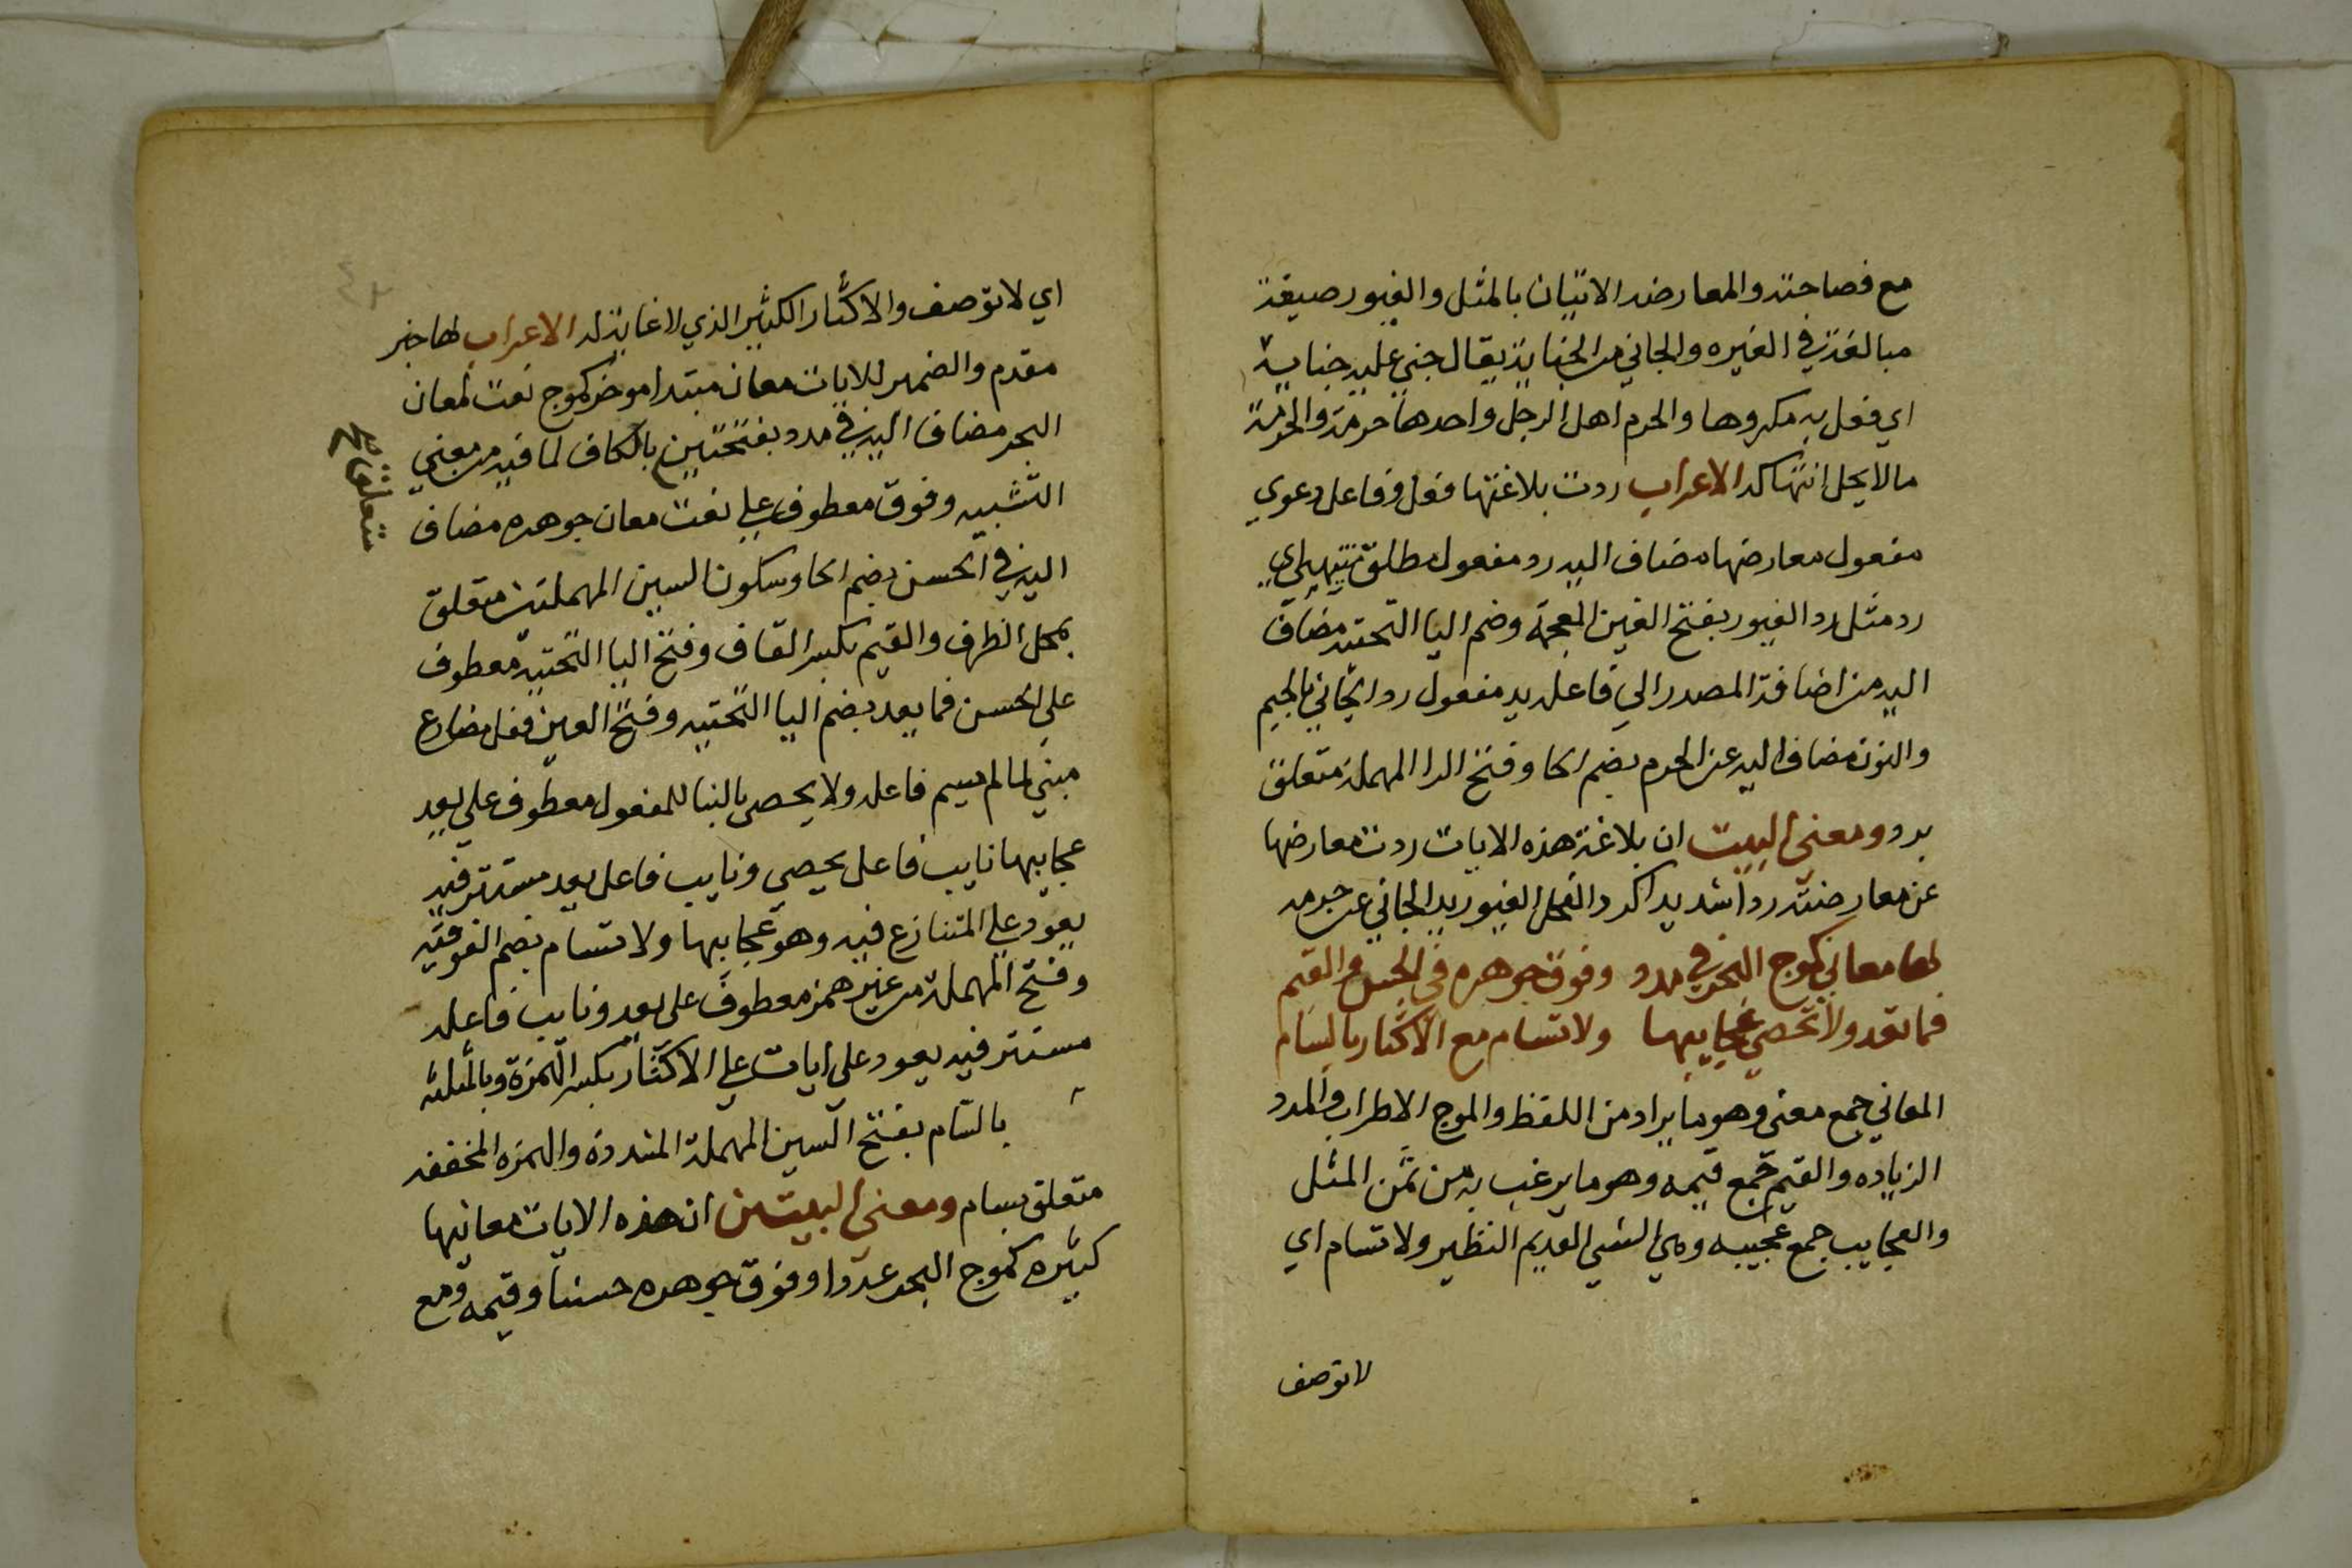 مع فصاحته والمعارضه الاتيان بالمثل والغيور صيغة
مبالغة في الغيره والجاني من الجناية يقال جني عليه جناية
اي فعل به مكروها والحرم اهل الرجل واحدها حرمة والحرمة
مالا يحل انتهاكه الاعراب ردت بلاغتها فعل وفاعل دعوي
مفعول معارضها مضاف اليه رد مفعول مطلق تشبيهي اي
رد مثل رد الغيور بفتح الغين المعجمة وضم اليا التحتيه مضاف
اليه من اضافة المصدر الي فاعله يد مفعول رد الجاني بالجيم
والنون مضاف اليه عن الحرم بضم الحا وفتح الرا المهملة متعلق
برد ومعني البيت ان بلاغة هذه الايات ردت معارضها
عن معارضته ردا شديدا كرد الفحل الغيور يد الجاني عن حرمه
لها معاني كموج البحر في مدد وفوق جوهره في الحسن والقيم
فما تعد ولا تحصي عجايبها ولا تسام مع الاكثار بالسام
المعاني جمع معني وهو ما يراد من اللفظ والموج الاطراب والمدد
الزياده والقيم جمع قيمه وهو ما يرغب به من ثمن المثل
والعجايب جمع عجيبه وهي الشي العديم النظير ولا تسام اي
لا توصف
اي لا توصف والاكثار الكثير الذي لا غاية له الاعراب لها خبر
مقدم والضمير للايات معان مبتدا موخر كموج نعت لمعان
البحر مضاف اليه في مدد بفتحتين بالكاف لما فيه من معني
متعلق صح
التشبيه وفوق معطوف علي نعت معان جوهره مضاف
اليه في الحسن بضم الحا وسكون السين المهملتين متعلق
بمحل الظرف والقيم بكسر القاف وفتح اليا التحتيه معطوف
علي الحسن فما يعد بضم اليا التحتيه وفتح العين فعل مضارع
مبني لما لم يسم فاعله ولا يحصي بالبنا للمفعول معطوف علي يعد
عجايبها نايب فاعل يحصي ونايب فاعل يعد مستتر فيه
يعود علي المتنازع فيه وهو عجايبها ولا تسام بضم الفوقيه
وفتح المهملة من غير همز معطوف علي يعد ونايب فاعله
مستتر فيه يعود علي ايات علي الاكثار بكسر الهمزة وبالمثلثه
بالسام بفتح السين المهملة المشددة والهمزه المخففه
متعلق بسام ومعني البيتين ان هذه الايات معانيها
كثيره كموج البحر عددا وفوق جوهره حسنا وقيمه ومع